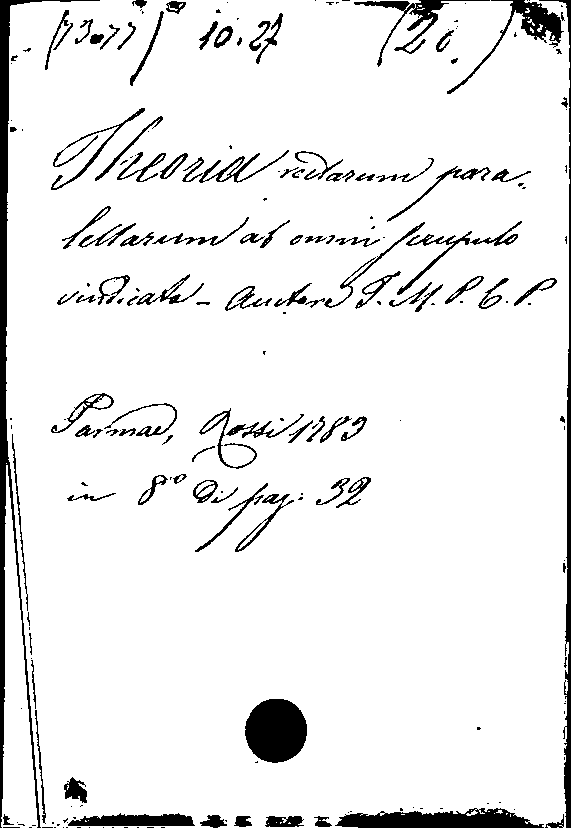 (73.77) 10.27 (20.)
Theoria rectarum para-
lellarum ab omni scrupulo
vindicata - Auctore T. M. P. C. P.
Parmae, Rossi 1783
in 8ᵛᵒ di pag: 32